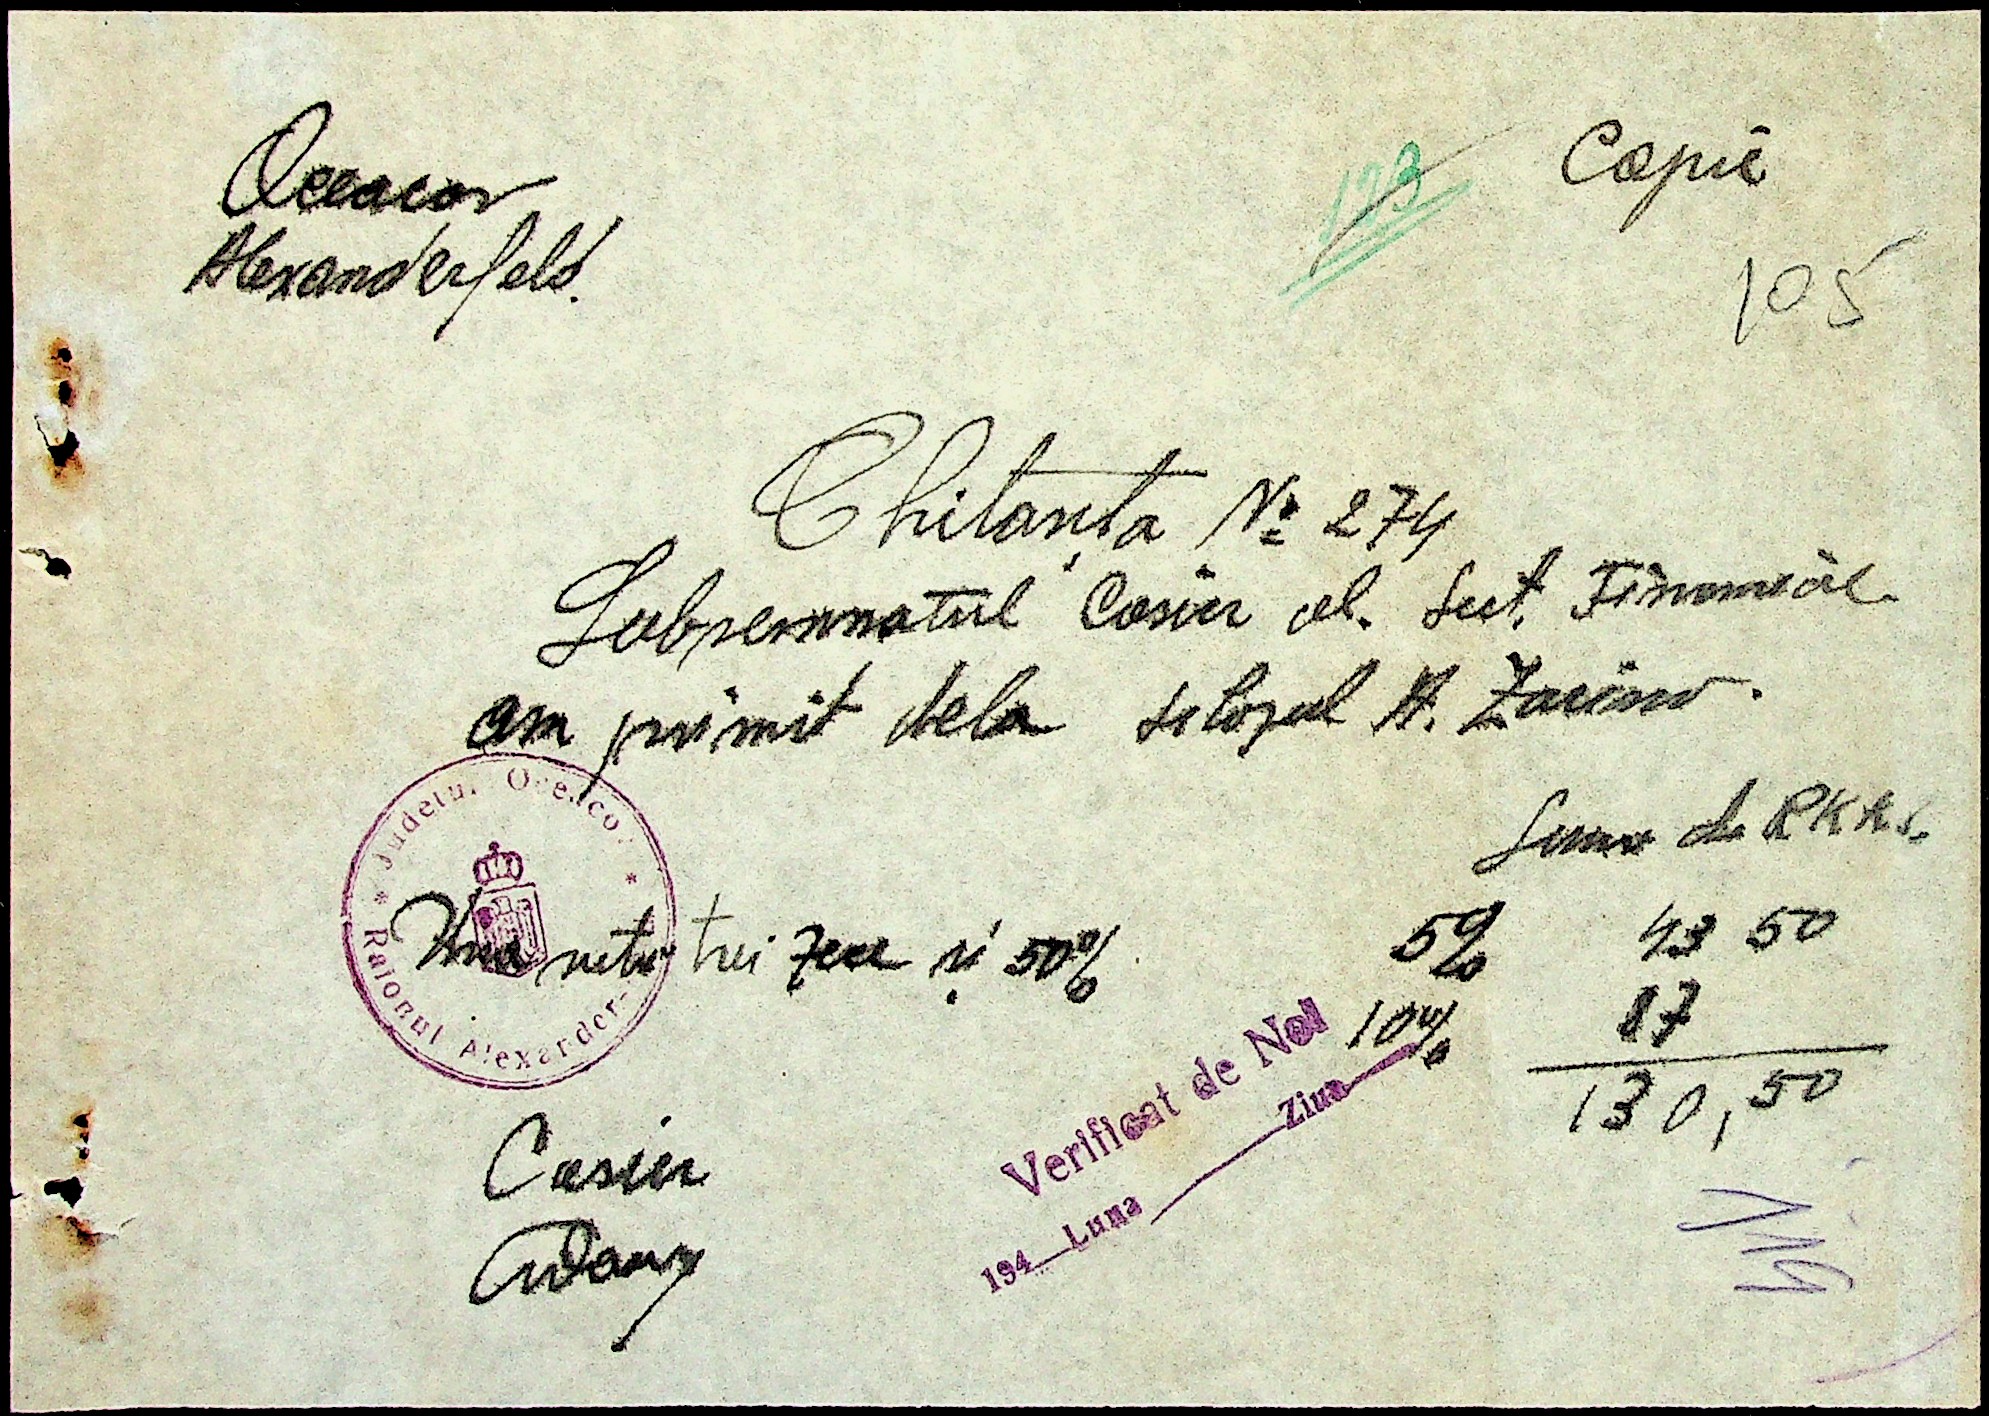 Oceacov
Alexanderfeld.
123
Copie
105
Chitanța No 274
Subsemnatul Casier al. Sect. Financiar
am primit dela silozul A. Zarino.
Suma de RKKS.
Una sută trei zece și 50%
5% 43 50
10% 87
130,50
Județul Oceacov
Raionul Alexander-
Casier
Verificat de Noi
194 Luna Ziua